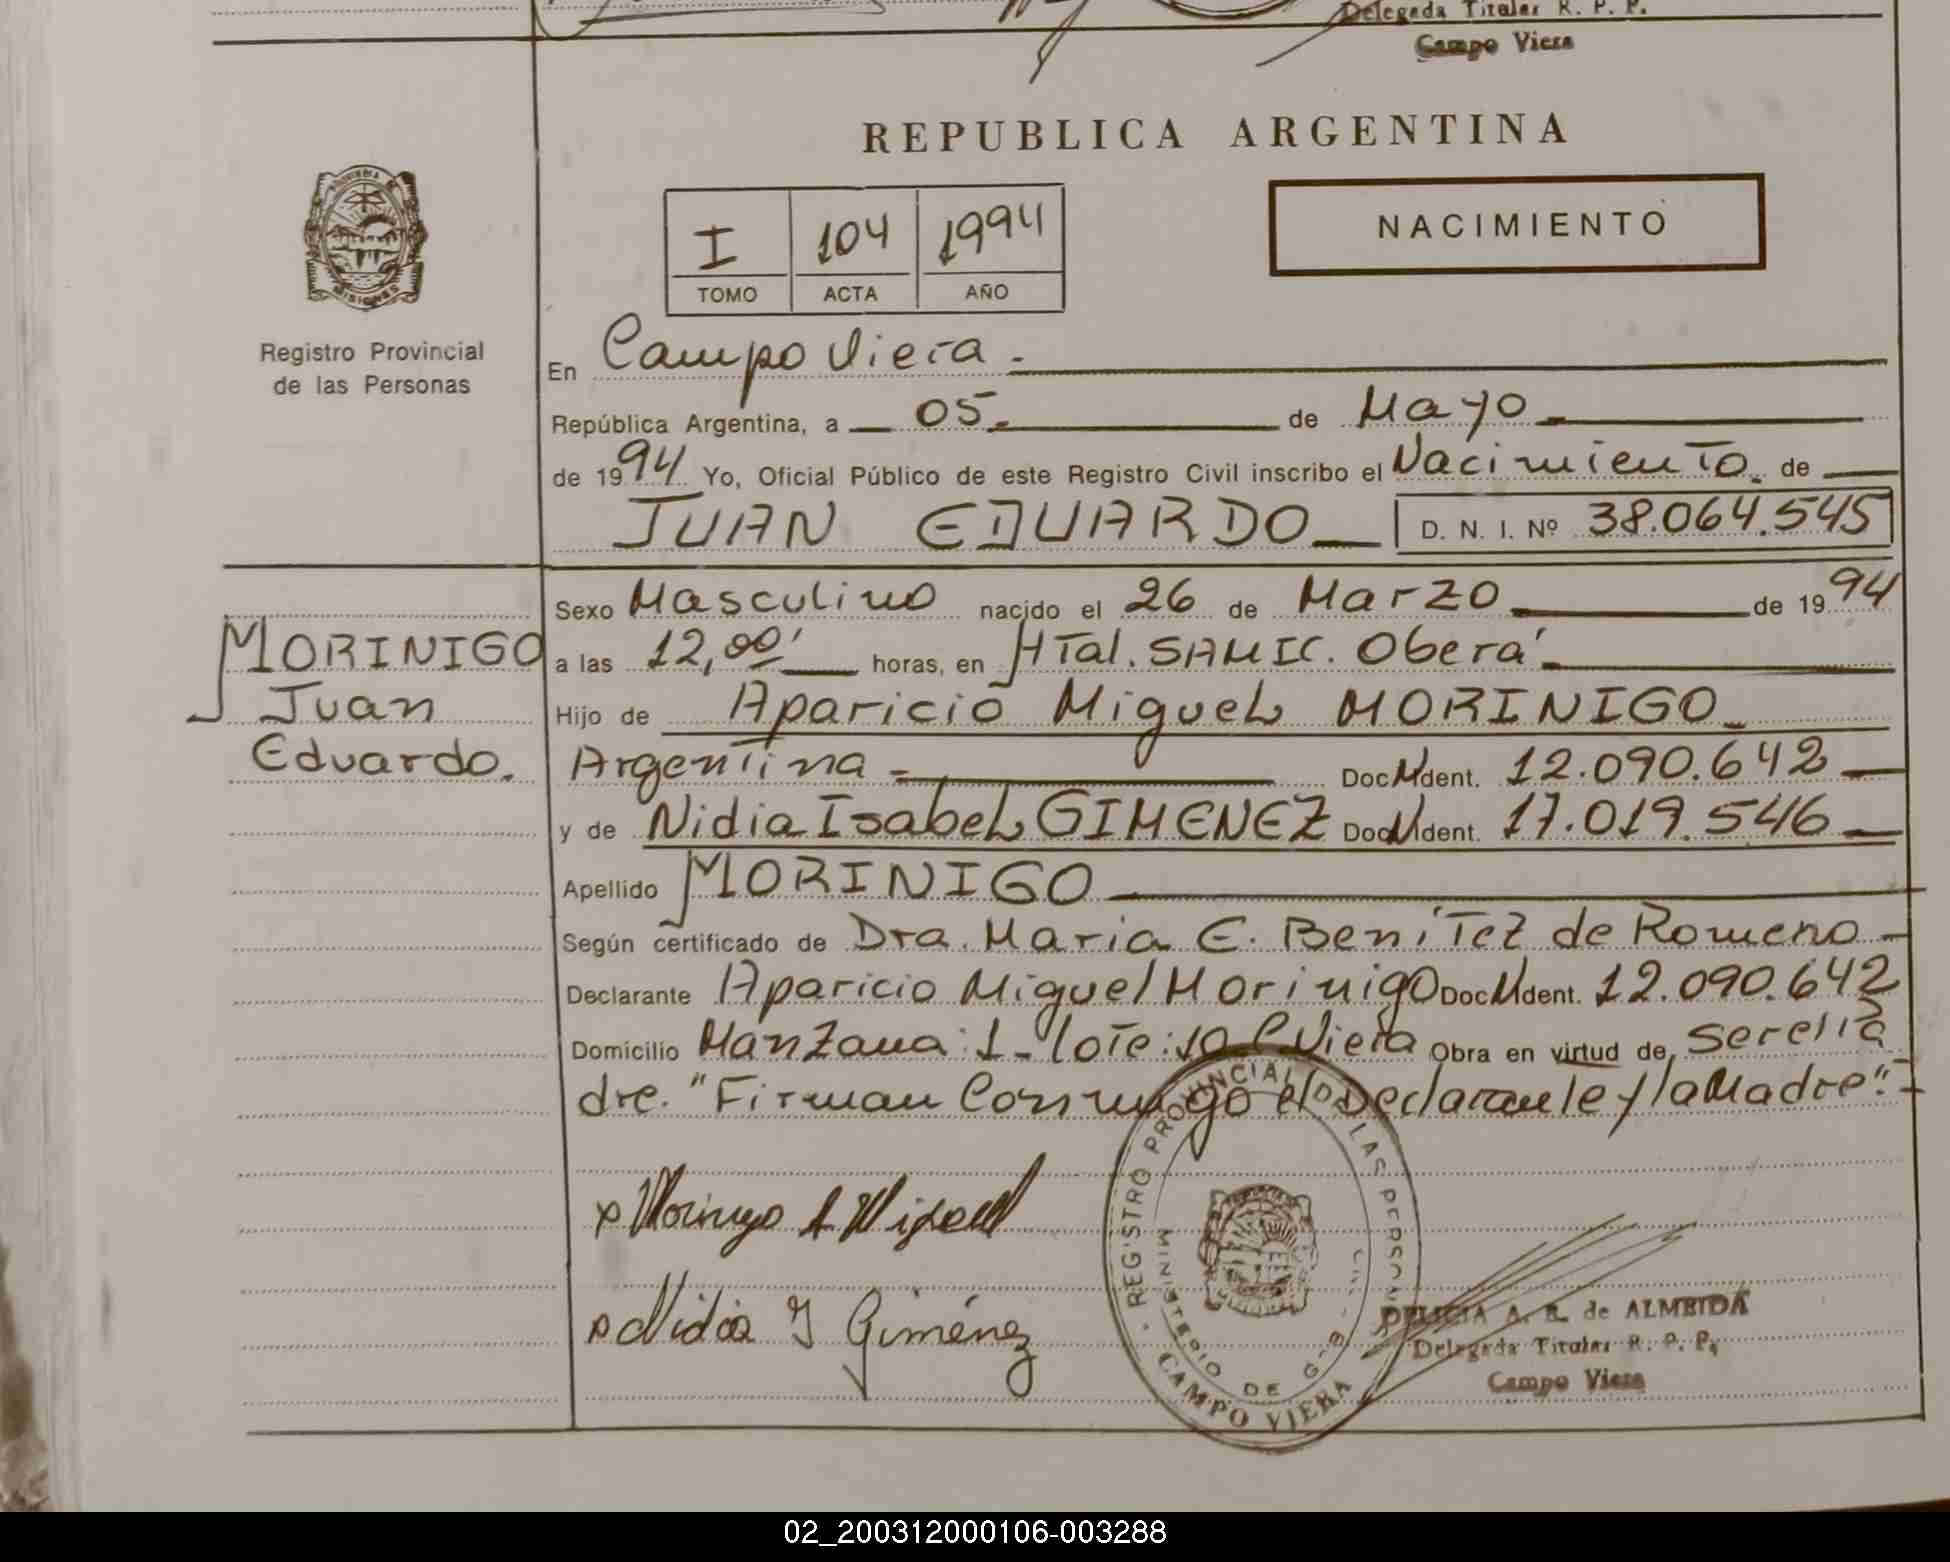 Delegada Titular R. P. P.
Campo Viera
REPUBLICA ARGENTINA
I 104 1994
TOMO ACTA AÑO
NACIMIENTO
Registro Provincial
de las Personas
En Campo Viera.
República Argentina, a 05. de Mayo
de 1994 Yo, Oficial Público de este Registro Civil inscribo el Nacimiento de
JUAN EDUARDO D. N. I. Nº 38.064.545
MORINIGO
Juan
Eduardo.
Sexo Masculino nacido el 26 de Marzo de 1994
a las 12,00' horas, en HTal. SAMIC. Oberá
Hijo de Aparicio Miguel MORINIGO
Argentina Doc. Ident. 12.090.642
y de Nidia Isabel GIMENEZ Doc. Ident. 17.019.546
Apellido MORINIGO
Según certificado de Dra. Maria E. Benítez de Romero
Declarante Aparicio Miguel Morinigo Doc. Ident. 12.090.642
Domicilio Manzana: 1- lote: 10 C Viera Obra en virtud de
dre. "Firman Conmigo el Declarante y la Madre".
Morinigo A Miguel
Nidia I Giménez
REGISTRO PROVINCIAL DE LAS PERSONAS
MINISTERIO DE G
CAMPO VIERA
DELICIA A. R. de ALMEIDA
Delegada Titular R. P. P.
Campo Viera
02_200312000106-003288